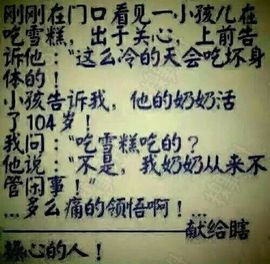 刚刚在门口看见一小孩儿在
吃雪糕，出于关心，上前告
诉他：“这么冷的天会吃坏身
体的！
小孩告诉我，他的奶奶活
了104岁！
我问：“吃雪糕吃的？
他说：“不是，我奶奶从来不
管闲事！”
…多么痛的领悟啊！
献给瞎
操心的人！